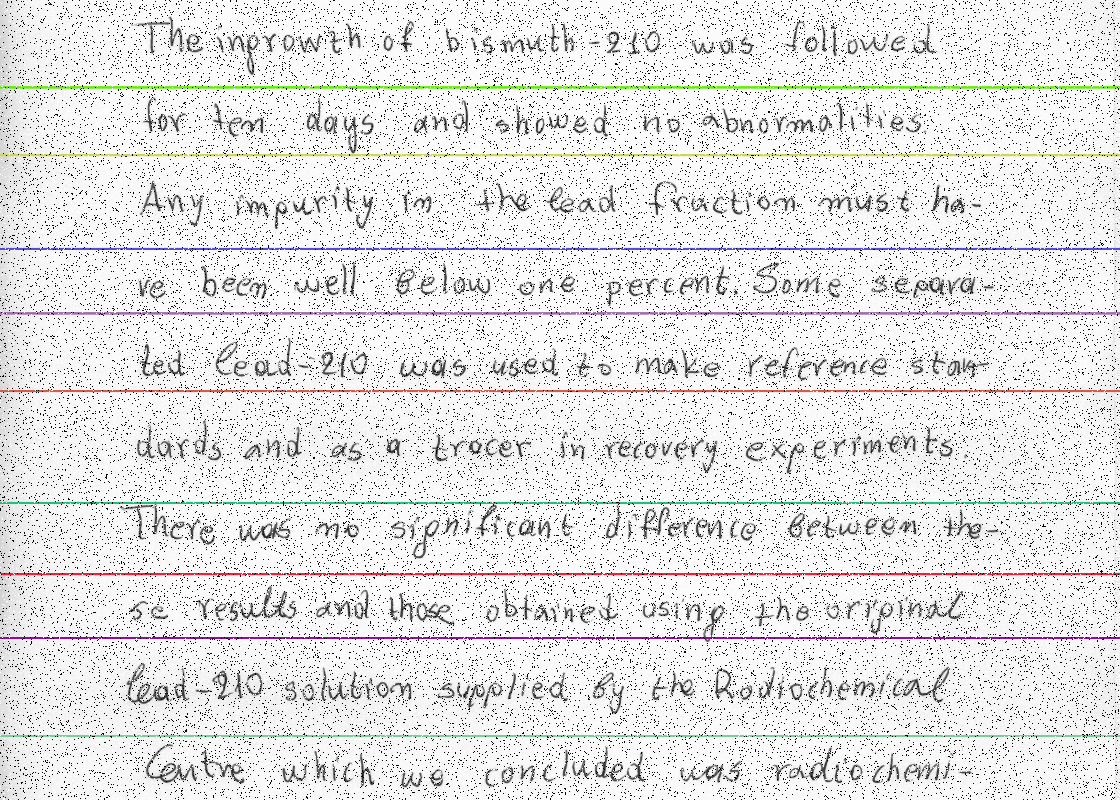 The ingrowth of bismuth-210 was followed
for ten days and showed no abnormalities.
Any impurity in the lead fraction must ha-
ve been well below one percent. Some separa-
ted lead-210 was used to make reference stan-
dards and as a tracer in recovery experiments.
There was no significant difference between the-
se results and those obtained using the original
lead-210 solution supplied by the Radiochemical
Centre which we concluded was radiochemi-